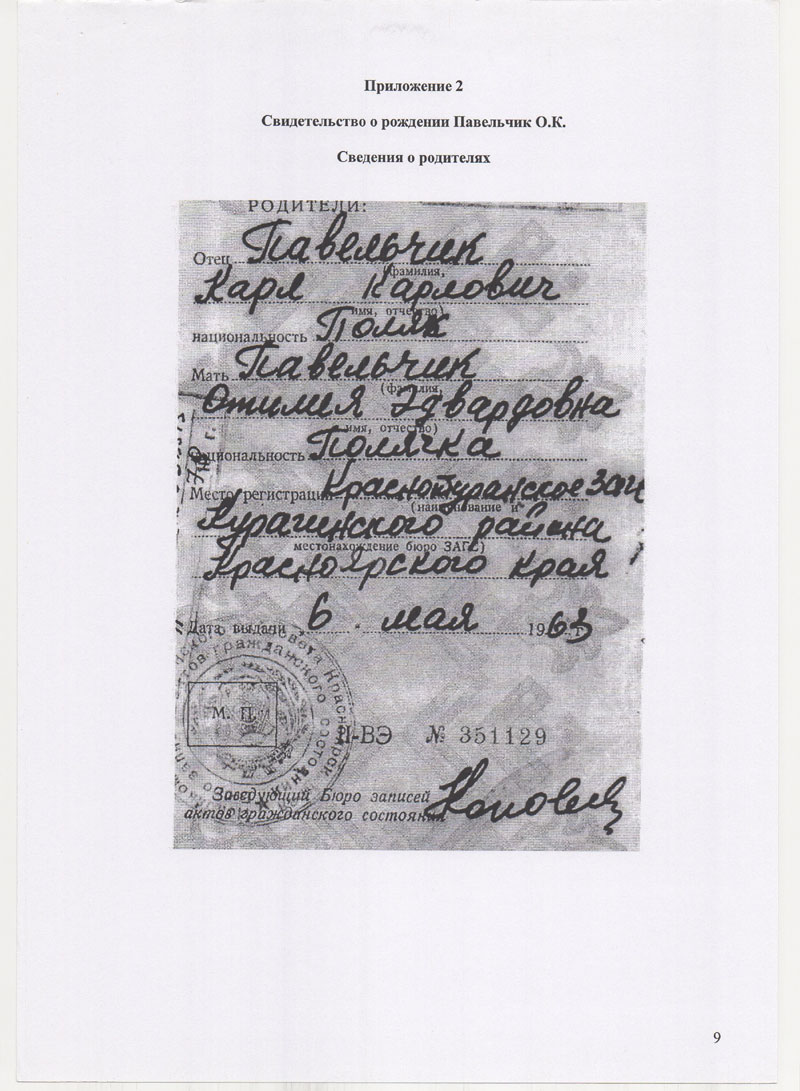 Приложение 2
Свидетельство о рождении Павельчик О.К.
Сведения о родителях
РОДИТЕЛИ:
Отец Павельчик
(фамилия,
Карл Карлович
имя, отчество)
национальность Поляк
Мать Павельчик
(фамилия,
Отилия Эдвардовна
имя, отчество)
национальность Полячка
Место регистрации Краснотуранское ЗАГС
(наименование и
Курагинского района
местонахождение бюро ЗАГС)
Красноярского края
Дата выдачи 6 . мая 1963 г.
М. П.
II-ВЭ № 351129
Заведующий Бюро записей
актов гражданского состояния
9